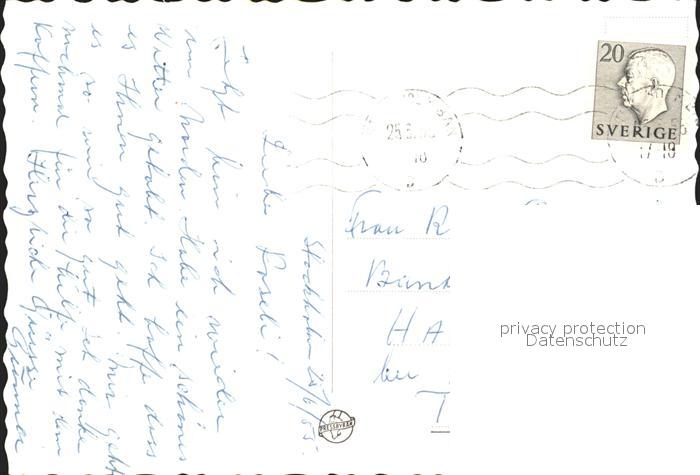 Stockholm 25/6/55.
Liebe Roseli!
Jetzt bin ich wieder
im Norden. Habe ein schönes
Wetter gehabt. Ich hoffe dass
es Ihnen gut geht. Mir geht
es so gut. Ich danke
nochmal für die Hilfe mit dem
Koffern. Herzliche Grüsse
Gunnar
20
SVERIGE
25.6.
18
17-18
Frau R
HA
bei
T
PRESSBYRÅN
privacy protection
Datenschutz